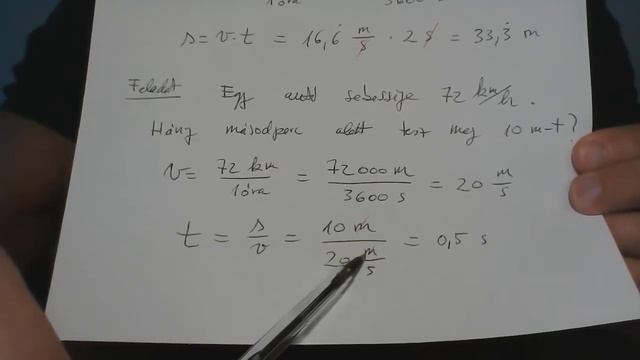 óra 3600
s = v·t = 16,6̇ m/s · 2 s = 33,3̇ m
Feladat Egy autó sebessége 72 km/h.
Hány másodperc alatt tesz meg 10 m-t?
v = 72 km / 1 óra = 72000 m / 3600 s = 20 m/s
t = s/v = 10 m / 20 m/s = 0,5 s